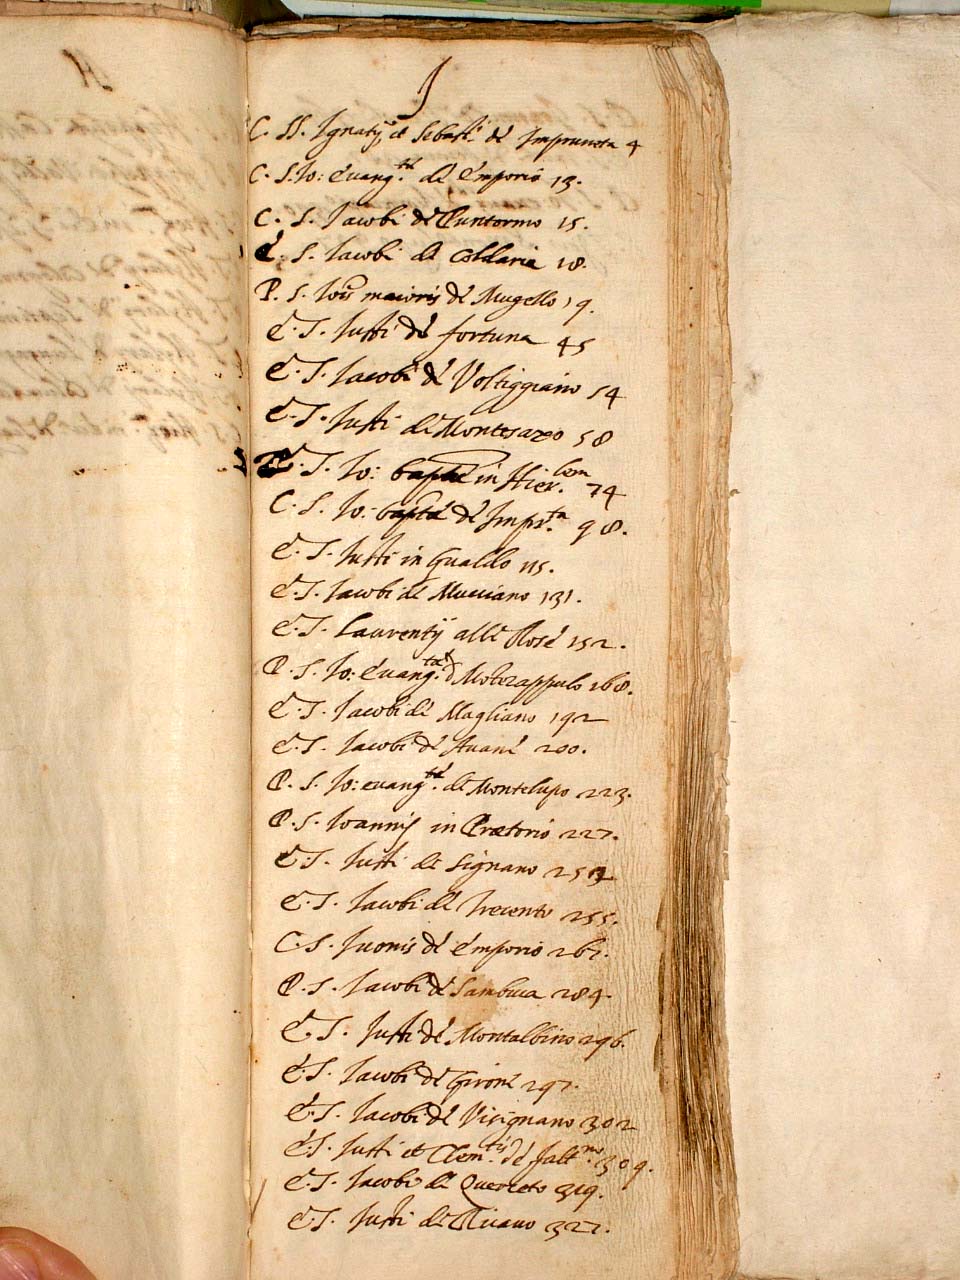 J
C. SS. Ignatij et Sebasti. de Impruneta 4
C. S. Io: Euang.tæ de Emporio 13.
C. S. Iacobi de Puntormo 15.
E. S. Iacobi de Coldaria 18.
P. S. Iois maioris de Mugello 19.
E. S. Iusti de fortuna 45
E. S. Iacobi de Voltiggiano 54
E. S. Iusti de Montesazo 58
E. S. Io: baptæ in Hier.lem 74
C. S. Io: baptæ de Impr.ta 98.
E. S. Iusti in Gualdo 115.
E. S. Iacobi de Mucciano 131.
E. S. Laurentij alle Rose 152.
P. S. Io: Euang.tæ d 168.
E. S. Iacobi de Magliano 192
E. S. Iacobi de Auane 200.
P. S. Io: euang.tæ de Montelupo 223.
P. S. Ioannis in Prætorio 227.
E. S. Iusti de Signano
E. S. Iacobi de Trecento 255.
C. S. Iuonis de Emporio 267.
P. S. Iacobi de Sambuca 284.
E. S. Iusti de Montalbino 296.
E. S. Iacobi de Girone 297.
E. S. Iacobi de Visignano 302
E. S. Iusti et Clem.tis de falt.no 309.
E. S. Iacobi de Querceto 319.
E. S. Iusti de 327.